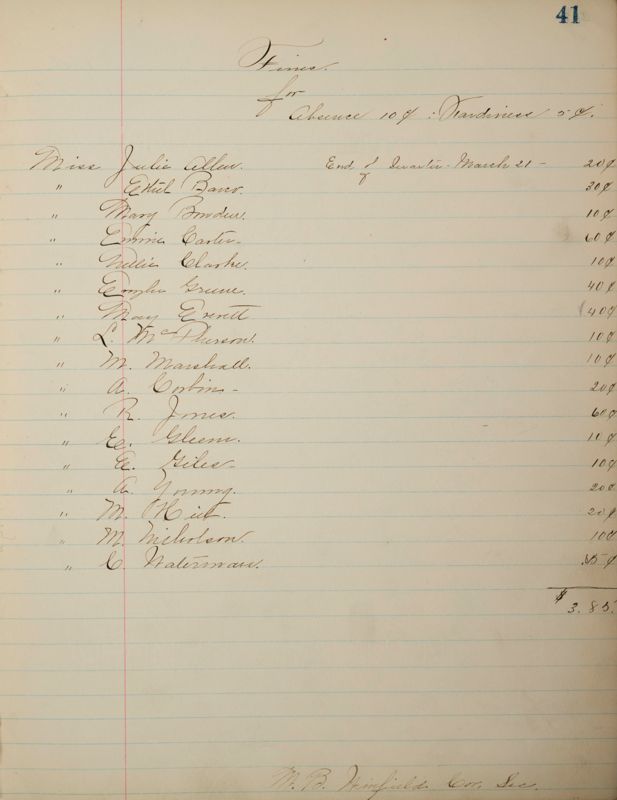 41
Fines.
for
Absence 10¢ : Tardiness 5¢.
Miss Julie Allen. End of Quarter - March 21 - 20¢
" Ethel Banv. 30¢
" Mary Bowden. 10¢
" Emma Carter. 60¢
" Nellie Clarke. 10¢
" Greene. 40¢
" May Everett 40¢
" L. McPherson. 10¢
" M. Marshall. 10¢
" A. Corbin - 20¢
" R. Jones. 60¢
" E. Gleem. 10¢
" E. Giles - 10¢
" A. Young. 20¢
" M. Hiet. 20¢
" M. Nicholson. 10¢
" C. Waterman. 5¢
$ 3.85.
M. B. Winfield. Cor. Sec.